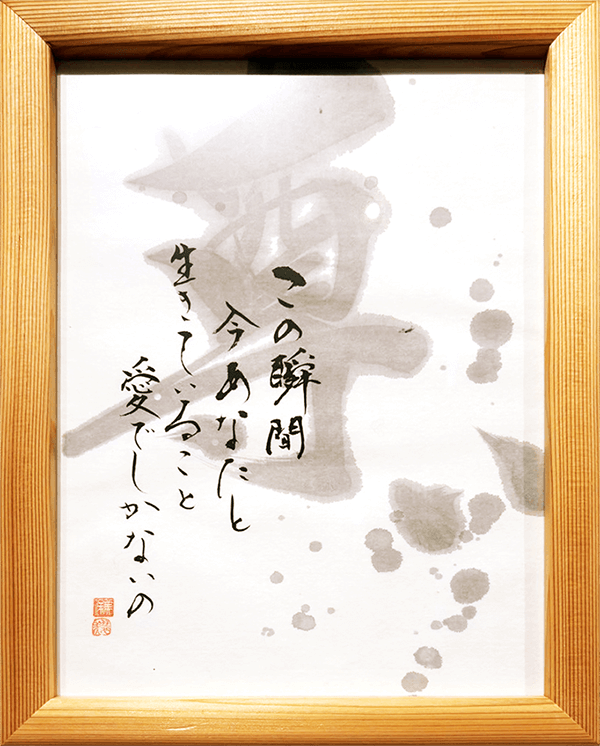 尊
この瞬間
今あなたと
生きていること
愛でしかないの